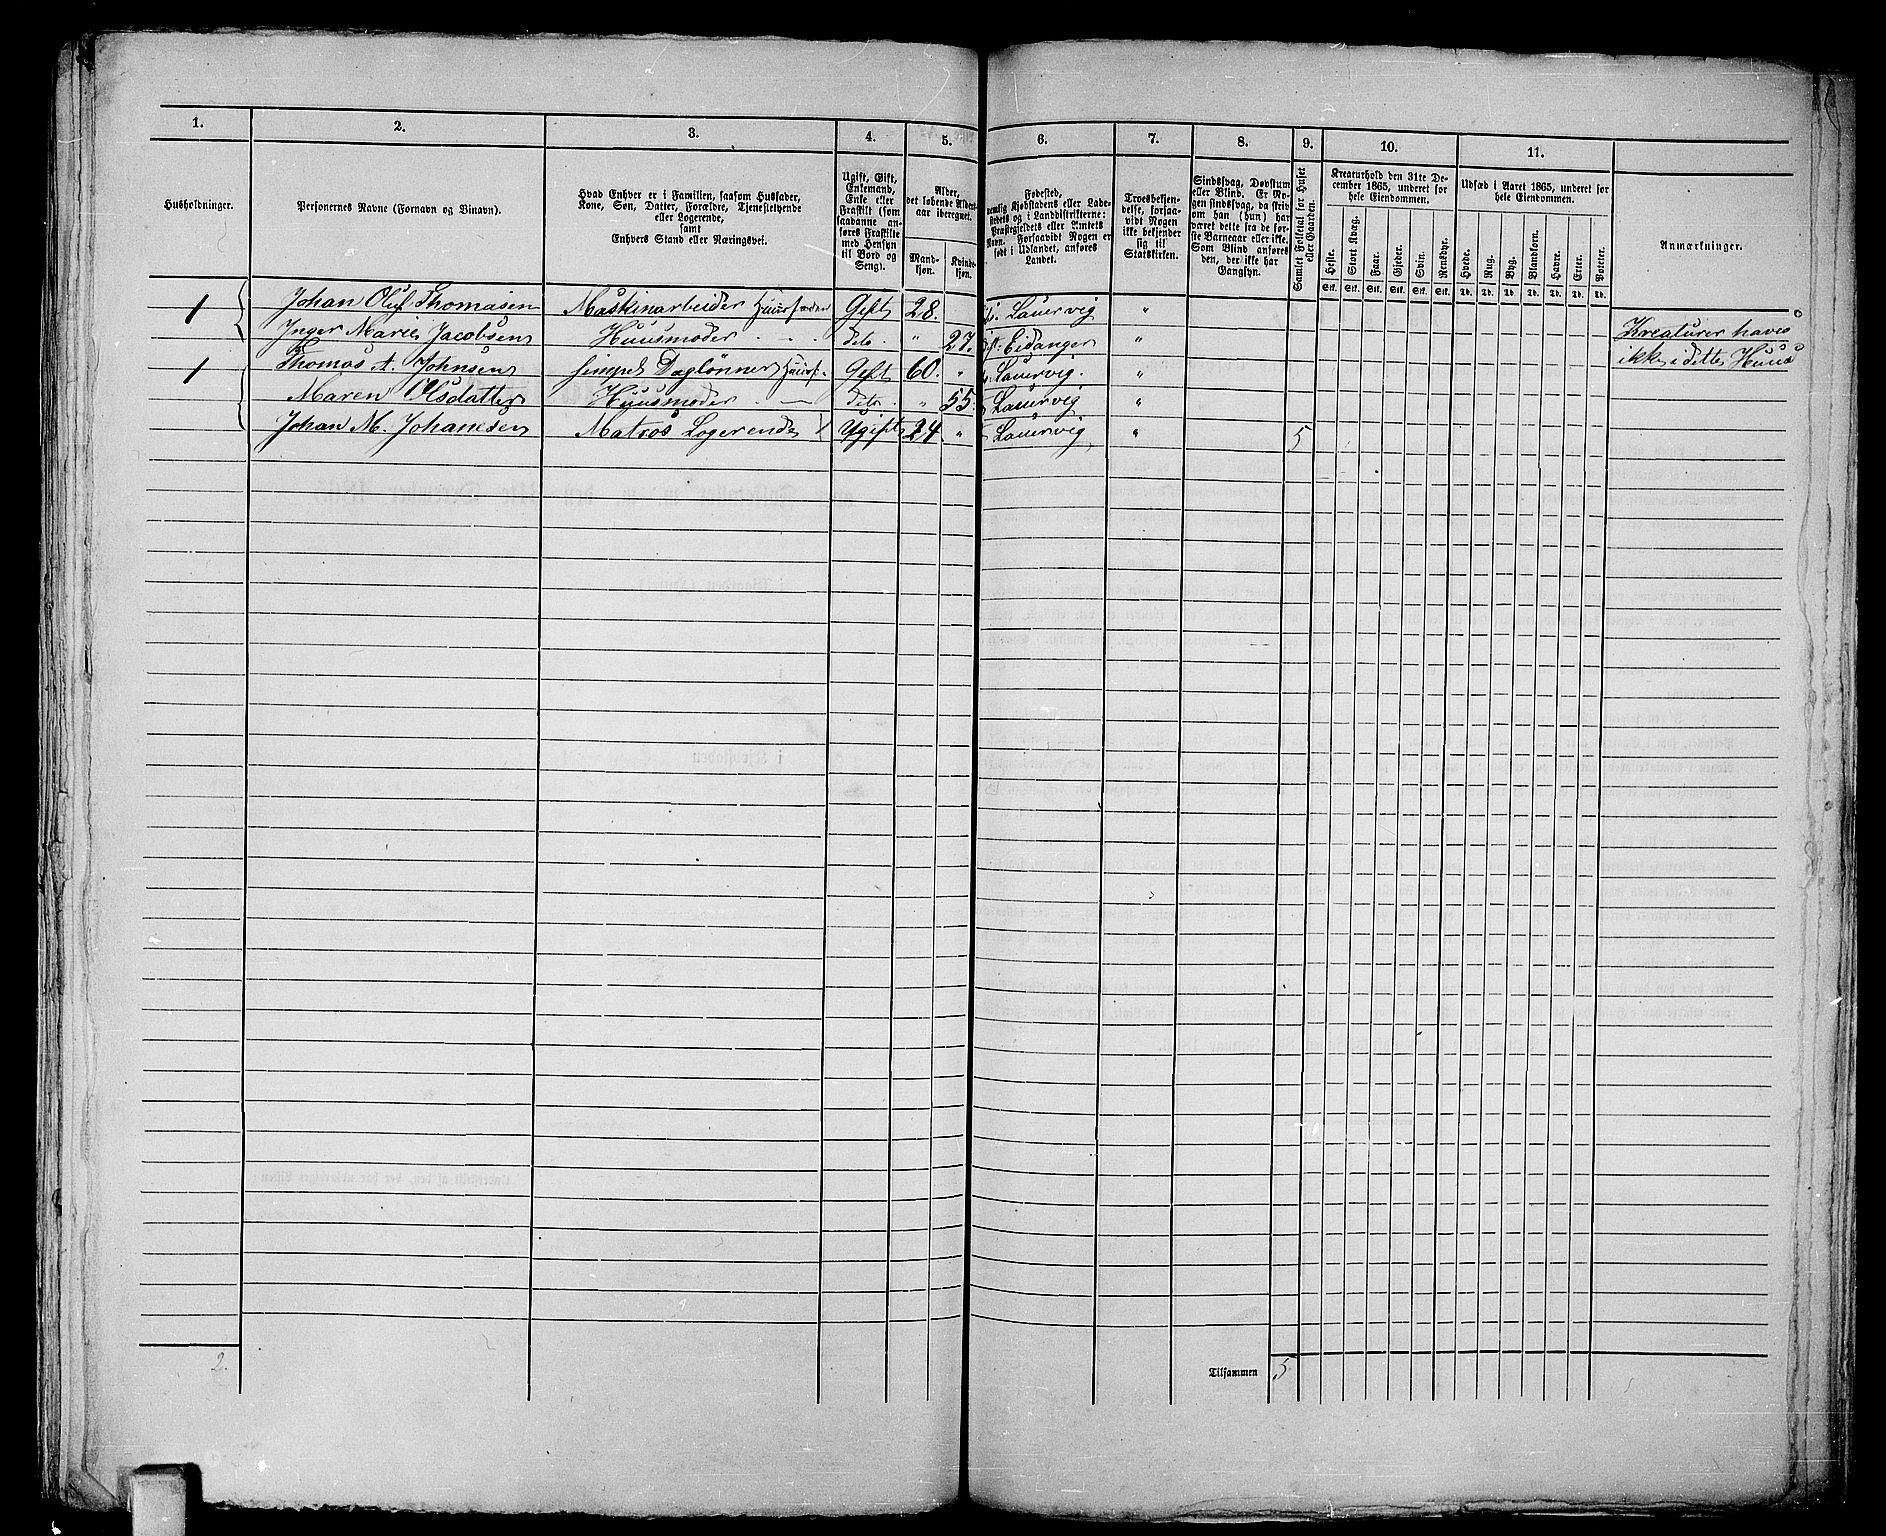 1. 2. 3. 4. 5. 6. 7. 8. 9. 10. 11.
Husholdninger.
Personernes Navne (Fornavn og Binavn).
Hvad Enhver er i Familien, saasom Husfader,
Kone, Søn, Datter, Forældre, Tjenestetyende
eller Logerende,
samt
Enhvers Stand eller Næringsvei.
Ugift, Gift,
Enkemand,
Enke eller
Fraskilt (som
saadanne an-
føres Fraskilte
med Hensyn
til Bord og
Seng).
Alder,
det løbende Alders-
aar iberegnet.
Mand-
kjøn.
Kvinde-
kjøn.
Fødested,
nemlig Kjøbstadens eller Lade-
stedets og i Landdistrikterne:
Præstegjeldets eller Amtets
Navn. Forsaavidt Nogen er
født i Udlandet, anføres
Landet.
Troesbekjen-
delse, forsaa-
vidt Nogen
ikke bekjender
sig til
Statskirken.
Sindssvag, Døvstum
eller Blind. Er No-
gen sindssvag, da skriv
om han (hun) har
været dette fra de før-
ste Barneaar eller ikke.
Som Blind anføres
den, der ikke har
Gangsyn.
Samlet Folketal for Huset
eller Gaarden.
Kreaturhold den 31te De-
cember 1865, underet for
hele Eiendommen.
Heste. Stort Kvæg. Faar. Gjeder. Svin. Rensdyr.
Stk. Stk. Stk. Stk. Stk. Stk.
Udsæd i Aaret 1865, underet for
hele Eiendommen.
Hvede. Rug. Byg. Blandkorn. Havre. Erter. Poteter.
Td. Td. Td. Td. Td. Td. Td.
Anmærkninger.
1 Johan Oluf Thomasen Maskinarbeider Huusfader Gift 28. Laurvig "
Inger Marie Jacobsen Huusmoder dito " 27. Eidanger "
1 Thomas A. Johnsen simpel Daglønner Huusf. Gift 60. " Laurvig. "
Maren Olsdatter Huusmoder dito " 55. Laurvig "
Johan M. Johanesen Matros Logerende Ugift 24 " Laurvig " 5
Kreaturer haves
ikke i dette Huus
2.
Tilsammen 5